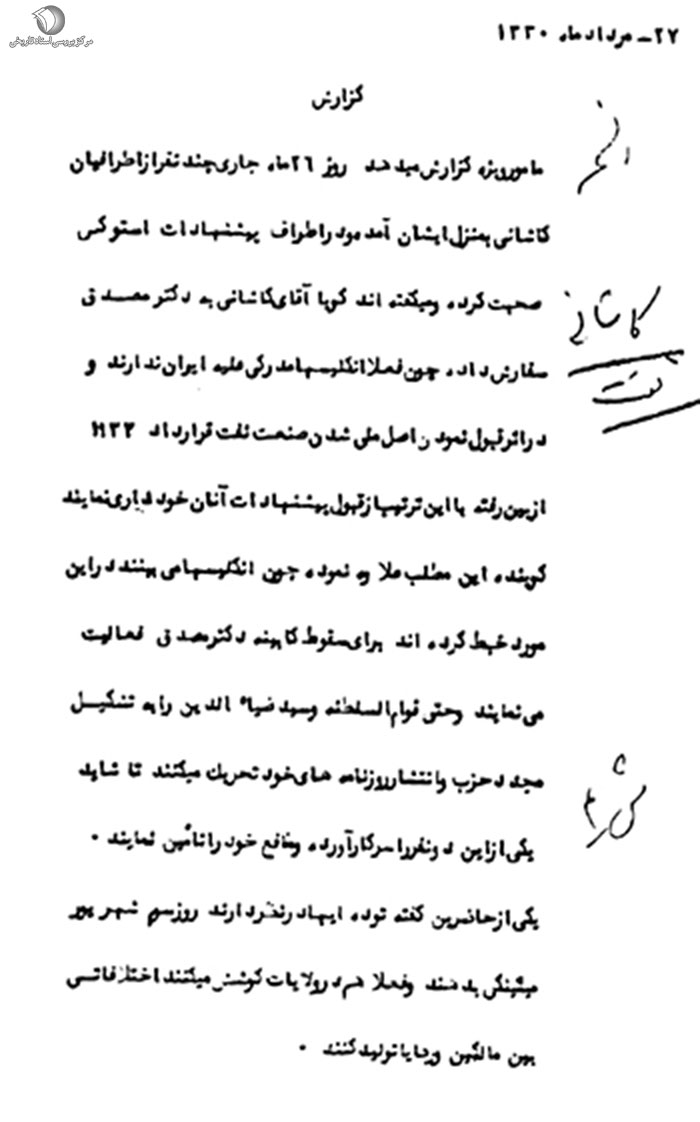 مرکز بررسی اسناد تاریخی
۲۷ـ مرداد ماه ۱۳۳۰
گزارش
مامور ویژه گزارش میدهد روز ۲۶ ماه جاری چند نفر از اطرافیان
کاشانی بمنزل ایشان آمده و در اطراف پیشنهادات استوکس
صحبت کرده و میگفته اند گویا آقای کاشانی به دکتر مصدق
سفارش داده چون فعلا انگلیسها مدرکی علیه ایران ندارند و
در اثر قبول نمودن اصل ملی شدن صنعت نفت قرارداد ۱۹۳۳
از بین رفته با این ترتیب از قبول پیشنهادات آنان خودداری نمایند
گوینده این مطلب علاوه نموده چون انگلیسها می بینند در این
مورد خبط کرده اند برای سقوط کابینه دکتر مصدق فعالیت
می نمایند وحتی قوام السلطنه وسید ضیاء الدین را به تشکیل
مجدد حزب وانتشار روزنامه های خود تحریك میکنند تا شاید
یکی از این دو نفر را سر کار آورده ومنافع خود را تأمین نمایند .
یکی از حاضرین گفته توده ایها در نظر دارند روز سوم شهریور
میتینگی بدهند وفعلا هم در ولایات کوشش میکنند اختلافاتی
بین مالکین ورعایا تولید کنند .
کاشانی
نفت